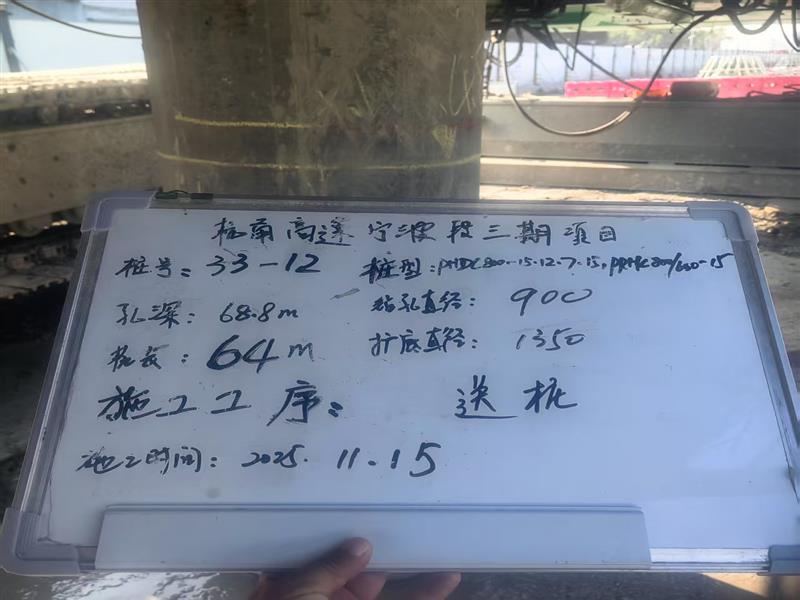 杭甬高速宁波段三期项目
桩号：33-12 桩型：PHDC800-15.12.7.15，PRHC800/600-15
孔深：68.8m 钻孔直径：900
桩长：64m 扩底直径：1350
施工工序：送桩
施工时间：2025.11.15